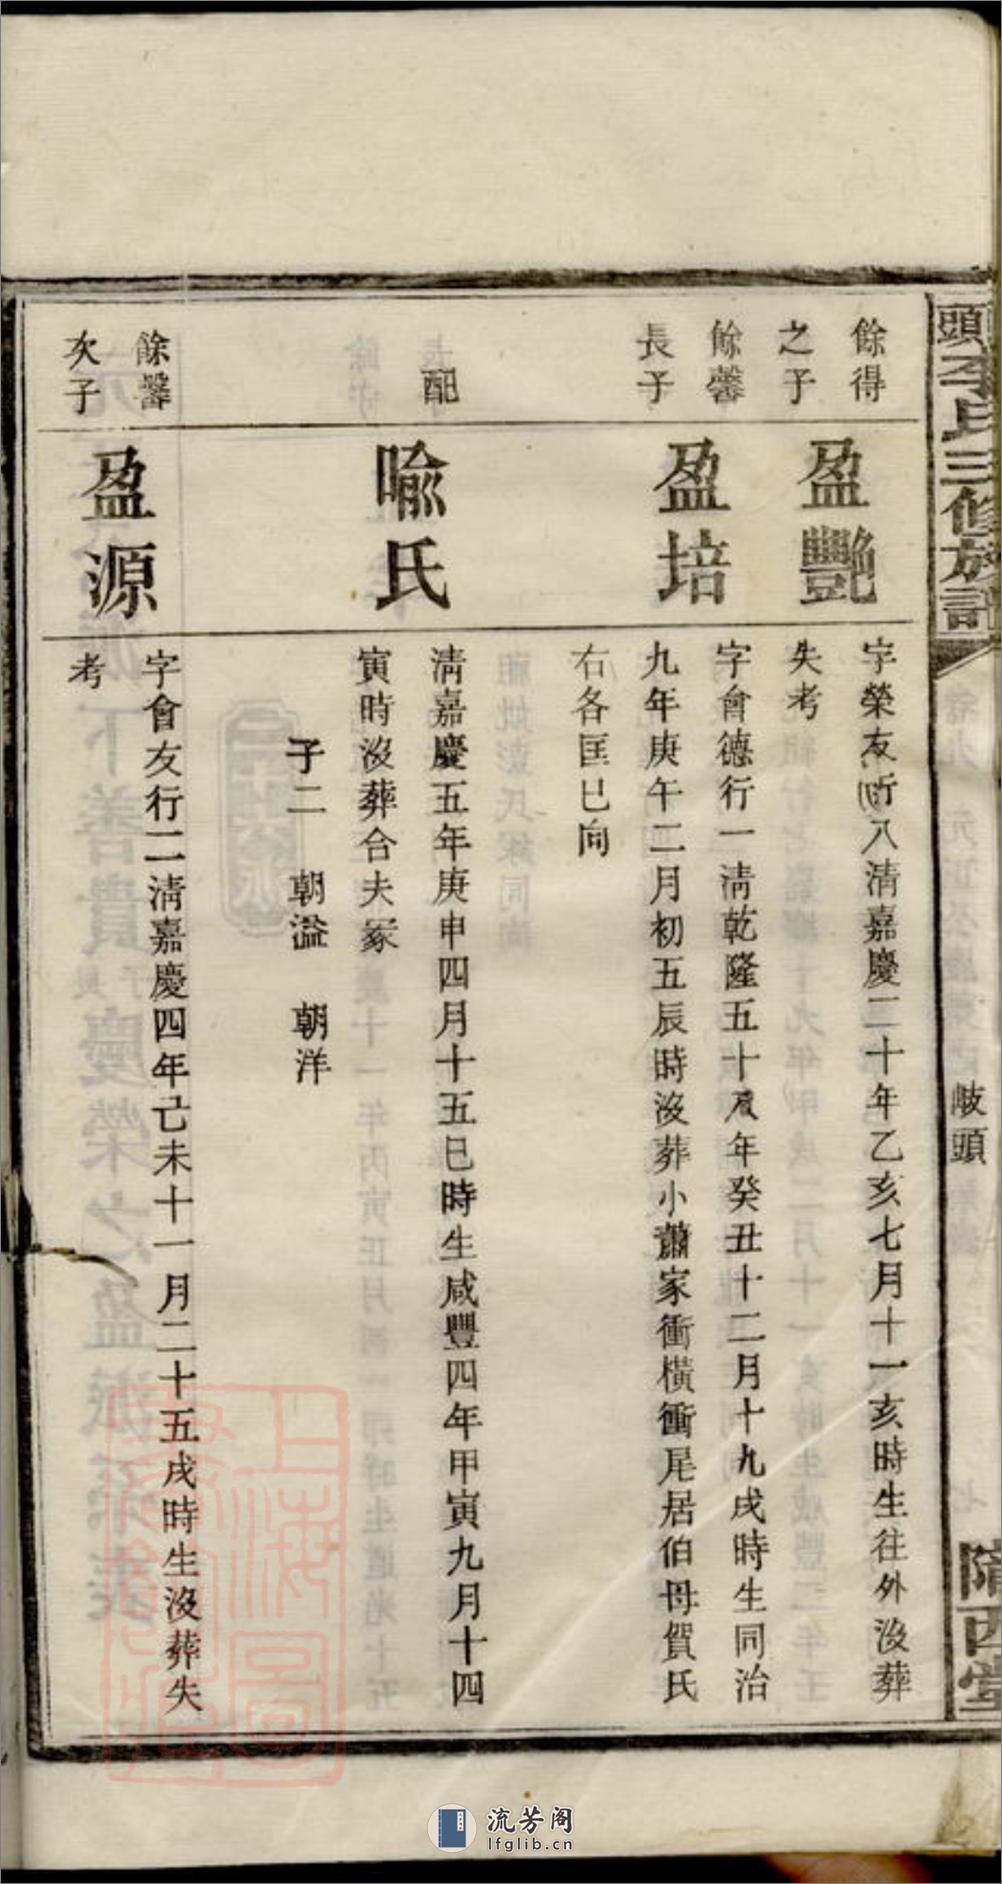 頭李氏三修族譜
岐頭
隴西堂
餘得
之子
盈艷
字榮友行八清嘉慶二十年乙亥七月十一亥時生往外沒葬
失考
餘馨
長子
盈培
字會德行一清乾隆五十八年癸丑十二月十九戌時生同治
九年庚午二月初五辰時沒葬小蕭家衝橫衝尾居伯母賀氏
右各匡巳向
配
喻氏
清嘉慶五年庚申四月十五巳時生咸豐四年甲寅九月十四
寅時沒葬合夫冢
子二 朝溢 朝洋
餘馨
次子
盈源
字會友行二清嘉慶四年己未十一月二十五戌時生沒葬失
考
流芳阁
lfglib.cn